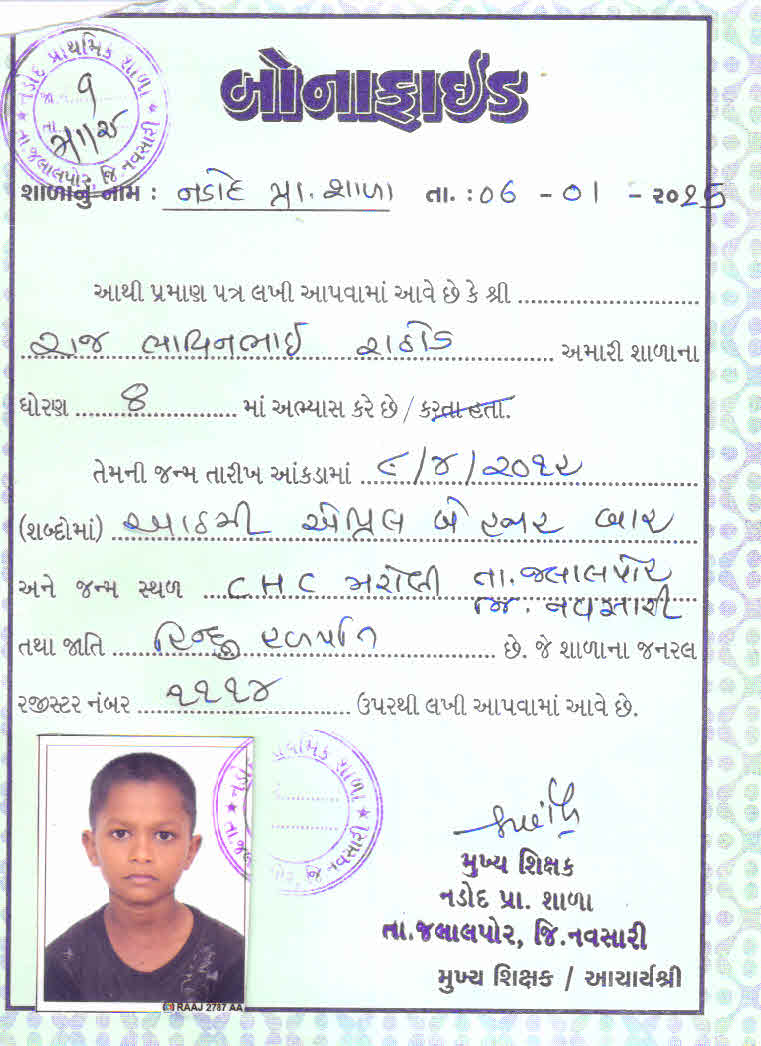 નડોદ પ્રાથમિક શાળા
જા.નં. ૧
તા.
તા.જલાલપોર, જિ.નવસારી
બોનાફાઈડ
શાળાનું નામ : નડોદ પ્રા. શાળા તા. : 06 - 01 - ૨૦25
આથી પ્રમાણ પત્ર લખી આપવામાં આવે છે કે શ્રી
રાજ ભાવિનભાઈ રાઠોડ અમારી શાળાના
ધોરણ 8 માં અભ્યાસ કરે છે / કરતા હતા.
તેમની જન્મ તારીખ આંકડામાં ૮/૪/૨૦૧૨
(શબ્દોમાં) આઠમી એપ્રિલ બે હજાર બાર
અને જન્મ સ્થળ CHC મરોલી તા. જલાલપોર
જિ. નવસારી
તથા જાતિ હિન્દુ હળપતિ છે. જે શાળાના જનરલ
રજીસ્ટર નંબર ૨૧૧૪ ઉપરથી લખી આપવામાં આવે છે.
પ્રાથમિક શાળા
મુખ્ય શિક્ષક
નડોદ પ્રા. શાળા
તા.જલાલપોર, જિ.નવસારી
મુખ્ય શિક્ષક / આચાર્યશ્રી
RAAJ 2787 AA